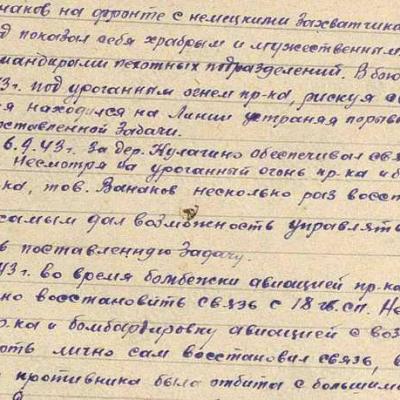 наков на фронте с немецкими захватчика
д показал себя храбрым и мужественным
мандирами пехотных подразделений. В бою
3г. под ураганным огнем пр-ка, рискуя с
я находился на линии устраняя порыв
оставленной задачи.
6.9.43г. за дер. Кулагино обеспечивал свя
Несмотря на ураганный огонь пр-ка и б
ка, тов. Ванаков несколько раз восст
самым дал возможность управлять
в поставленную задачу.
43г. во время бомбежки авиацией пр-ка
но восстановить связь с 18 гв. сп. Не
р-ка и бомбардировку авиацией с воз
ть лично сам восстановил связь, в
противника была отбита с большим